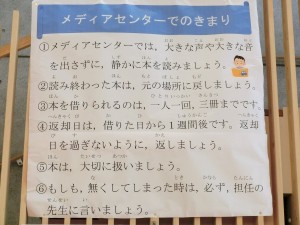 メディアセンターでのきまり
①メディアセンターでは,大きな声や大きな音
を出さずに,静かに本を読みましょう。
②読み終わった本は,元の場所に戻しましょう。
③本を借りられるのは,一人一回,三冊までです。
④返却日は,借りた日から1週間後です。返却
日を過ぎないように,返しましょう。
⑤本は,大切に扱いましょう。
⑥もしも,無くしてしまった時は,必ず,担任の
先生に言いましょう。